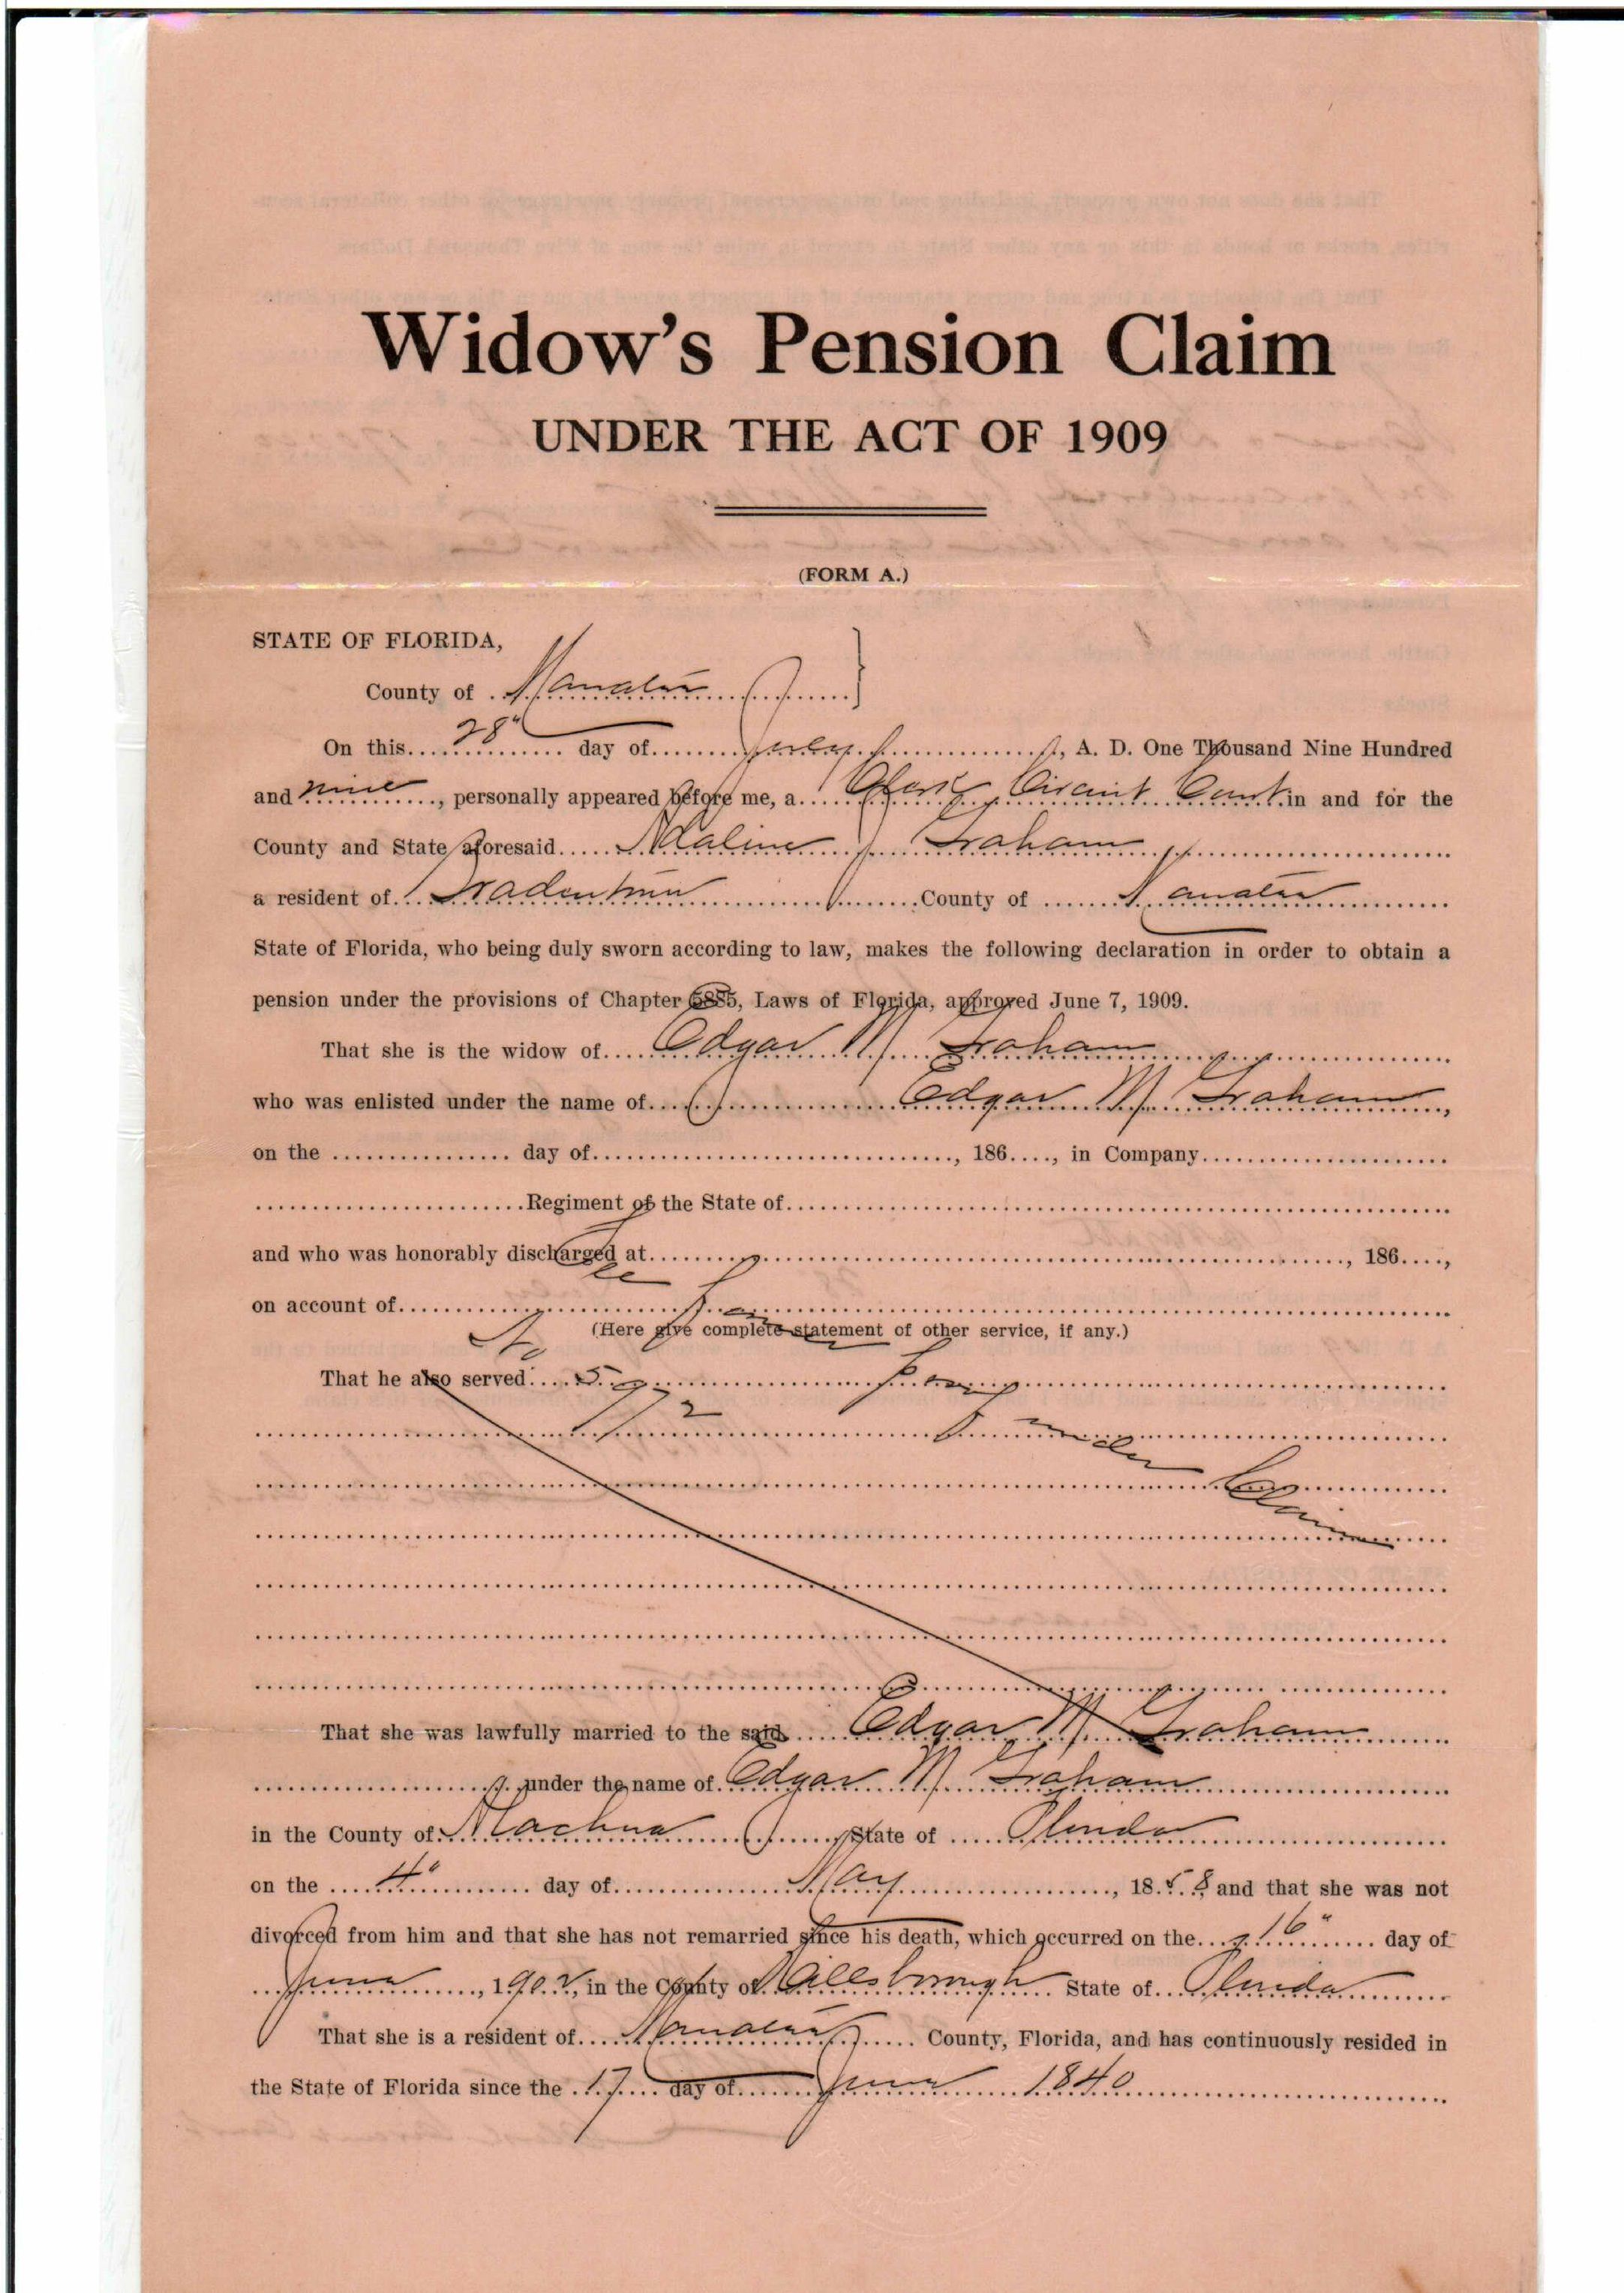 Widow's Pension Claim
UNDER THE ACT OF 1909
(FORM A.)
STATE OF FLORIDA,
County of Manatee
On this 28" day of July, A. D. One Thousand Nine Hundred
and nine, personally appeared before me, a Clerk Circuit Court in and for the
County and State aforesaid Adaline Graham
a resident of Bradentown County of Manatee
State of Florida, who being duly sworn according to law, makes the following declaration in order to obtain a
pension under the provisions of Chapter 5885, Laws of Florida, approved June 7, 1909.
That she is the widow of Edgar M Graham
who was enlisted under the name of Edgar M Graham
on the day of, 186, in Company
Regiment of the State of
and who was honorably discharged at, 186,
on account of
(Here give complete statement of other service, if any.)
That he also served
under
Claim
That she was lawfully married to the said Edgar M Graham
under the name of Edgar M Graham
in the County of Alachua State of Florida
on the 4" day of May, 1858 and that she was not
divorced from him and that she has not remarried since his death, which occurred on the 16" day of
June, 1902, in the County of Hillsborough State of Florida
That she is a resident of Manatee County, Florida, and has continuously resided in
the State of Florida since the 17 day of June 1840